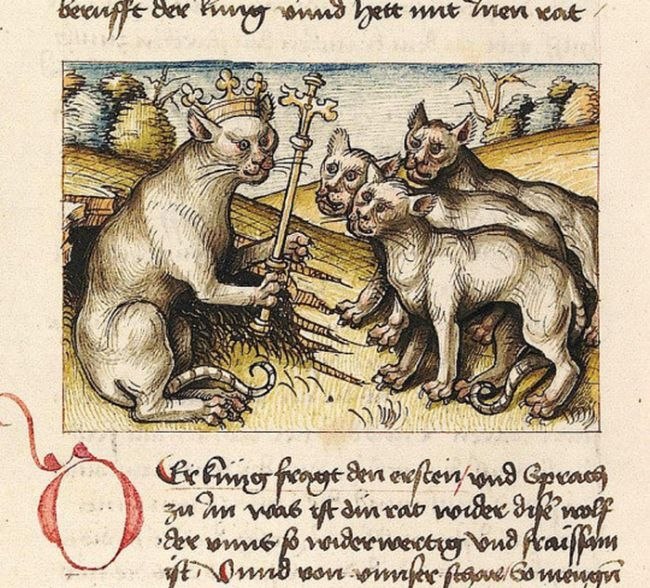 berufft der kung vnnd hett mit Inen rat
Er kung fragt den ersten / vnd Sprach
zu Im was ist din rat wider dise wolf
der vnns so widerwertig vnd fraissam
ist Vnnd von vnnser schar / So menign